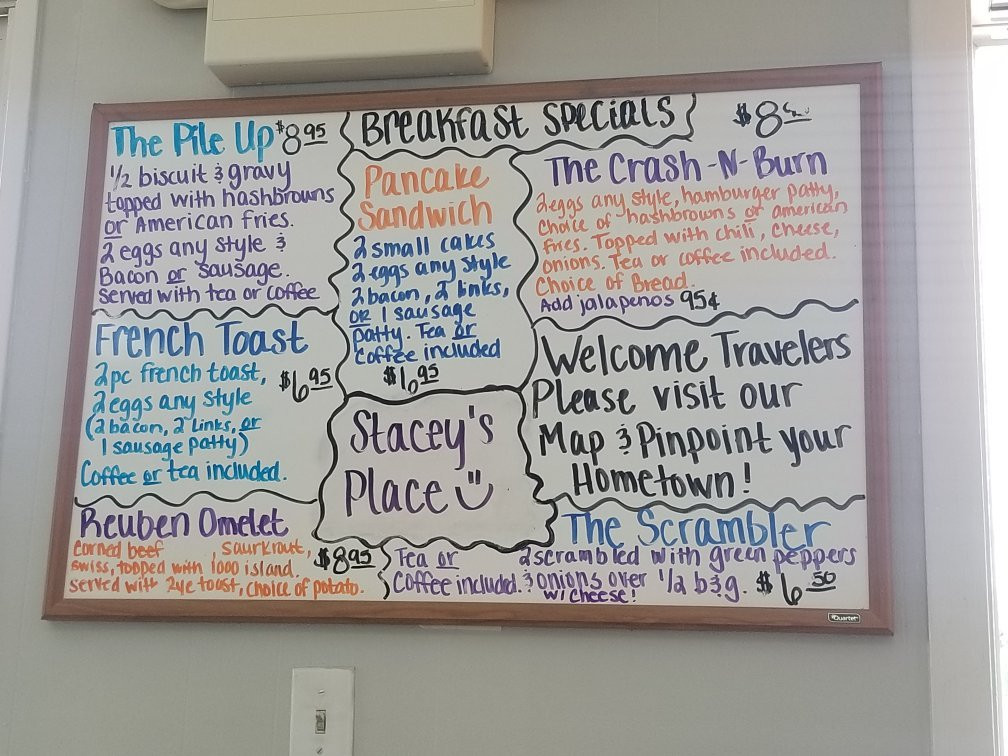 Breakfast Specials
The Pile Up $8 95
1/2 biscuit & gravy
topped with hashbrowns
or American fries.
2 eggs any style &
Bacon or sausage.
served with tea or coffee
Pancake
Sandwich
2 small cakes
2 eggs any style
2 bacon, 2 links,
or 1 sausage
patty. Tea or
Coffee included
$6 95
$8
The Crash-N-Burn
2 eggs any style, hamburger patty,
choice of hashbrowns or american
fries. Topped with chili, cheese,
onions. Tea or coffee included.
Choice of Bread.
Add jalapenos 95¢
French Toast
2pc french toast,
2 eggs any style
$6 95
(2 bacon, 2 Links, or
1 sausage patty)
Coffee or tea included.
Stacey's
Place
Welcome Travelers
Please visit our
Map & Pinpoint your
Hometown!
Reuben Omelet
Corned beef , saurkrout,
swiss, topped with 1000 island.
served with rye toast, choice of potato.
$8 95
Tea or
Coffee included.
The Scrambler
2 scrambled with green peppers
& onions over 1/2 b&g.
w/ cheese!
$6 50
Quartet